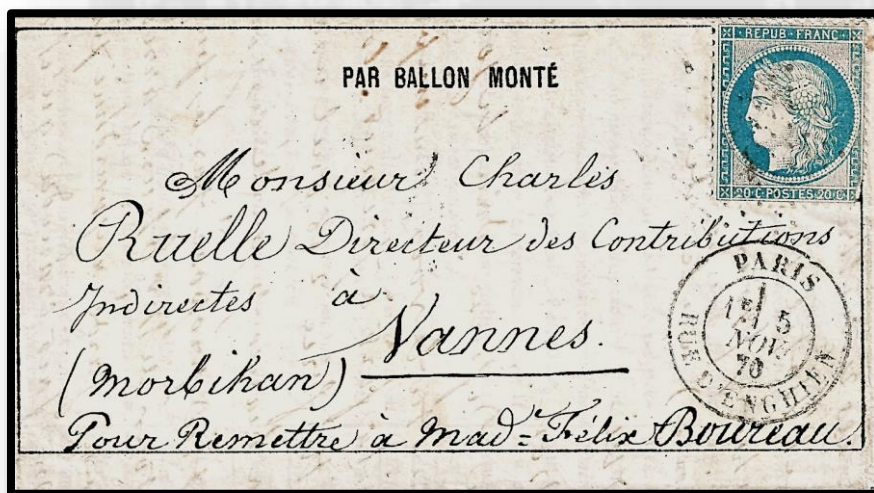 REPUB·FRANC
PAR BALLON MONTÉ
20 C·POSTES·20 C
Monsieur Charles
Ruelle Directeur des Contributions
Indirectes à
Vannes.
(Morbihan)
Pour Remettre à Mad= Félix Boureau.
PARIS
5
NOV.
70
RUE D'ENGHIEN